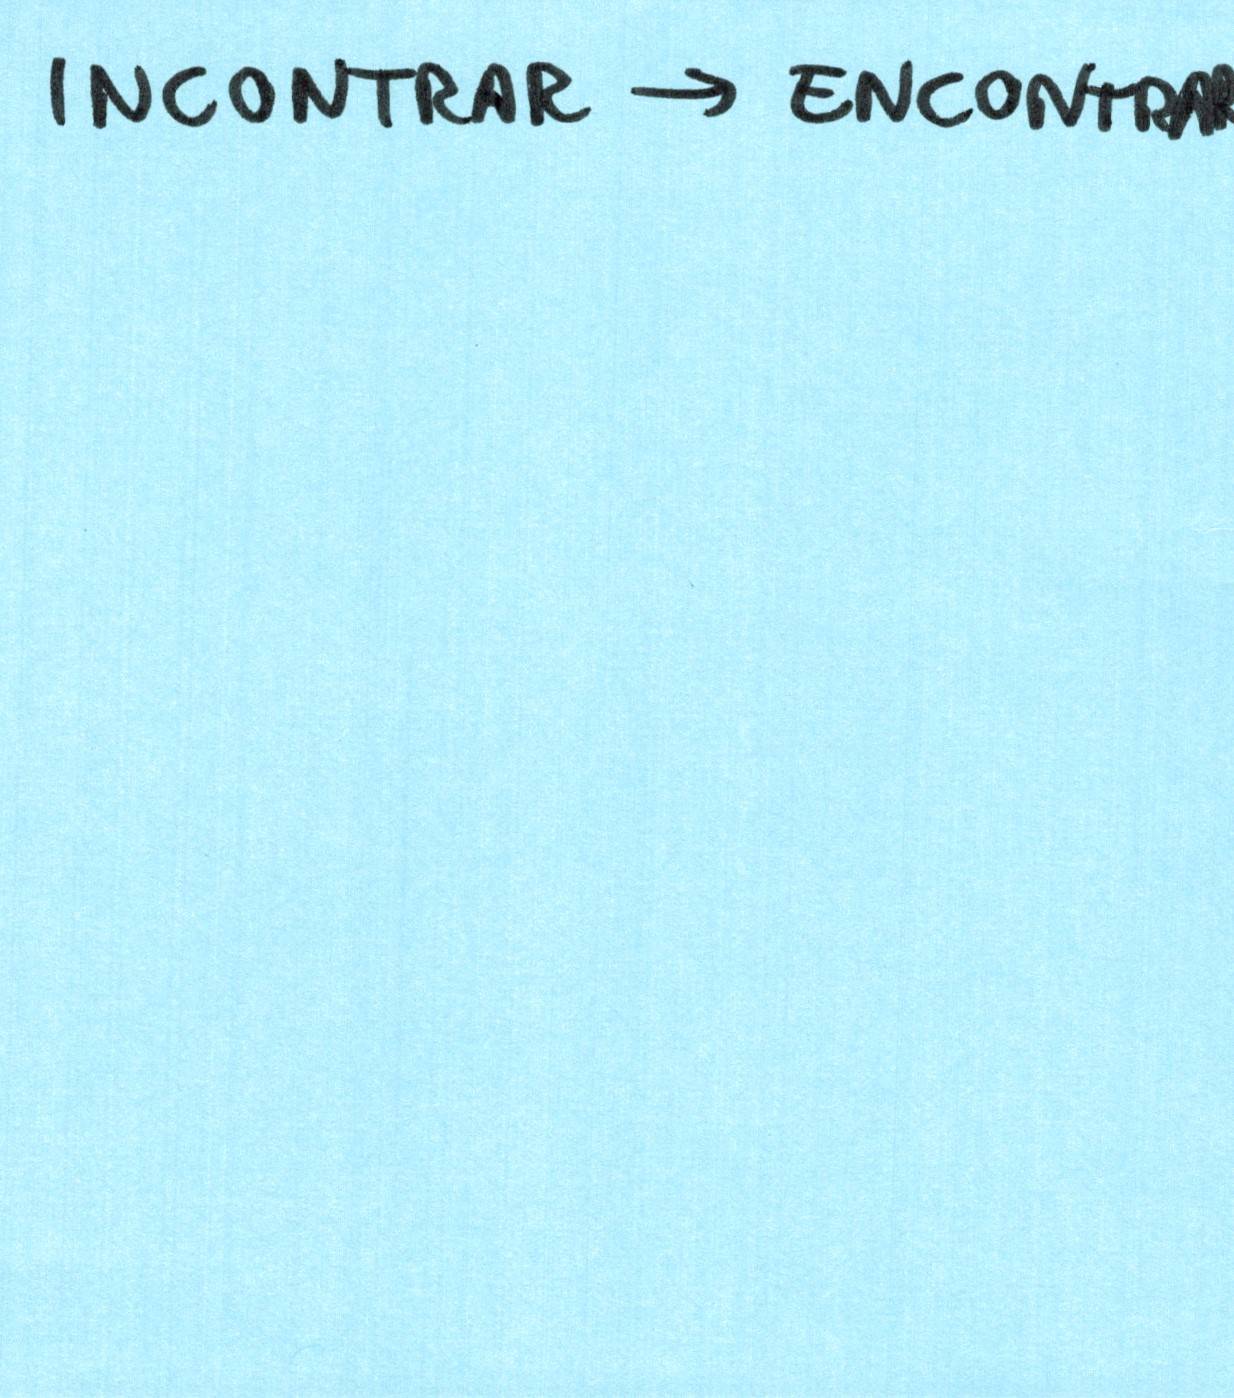 INCONTRAR → ENCONTRAR